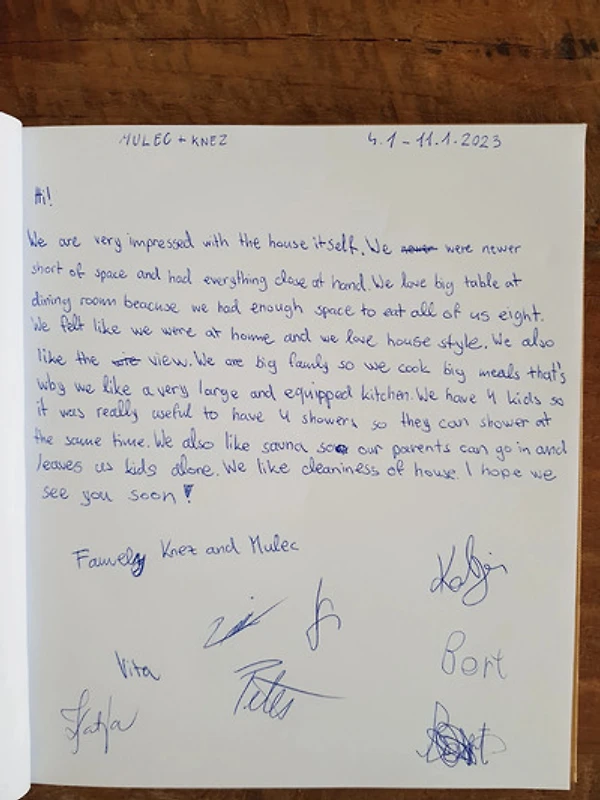 MULEC + KNEZ 4.1 - 11.1.2023
Hi!
We are very impressed with the house itself. We never were newer
short of space and had everything close at hand. We love big table at
dining room beacuse we had enough space to eat all of us eight.
We felt like we were at home and we love house style. We also
like the view. We are big famly so we cook big meals that's
why we like a very large and equipped kitchen. We have 4 kids so
it was really useful to have 4 showers so they can shower at
the same time. We also like sauna so our parents can go in and
leaves us kids alone. We like cleaniness of house. I hope we
see you soon!
Famely Knez and Mulec
Vita
Bort